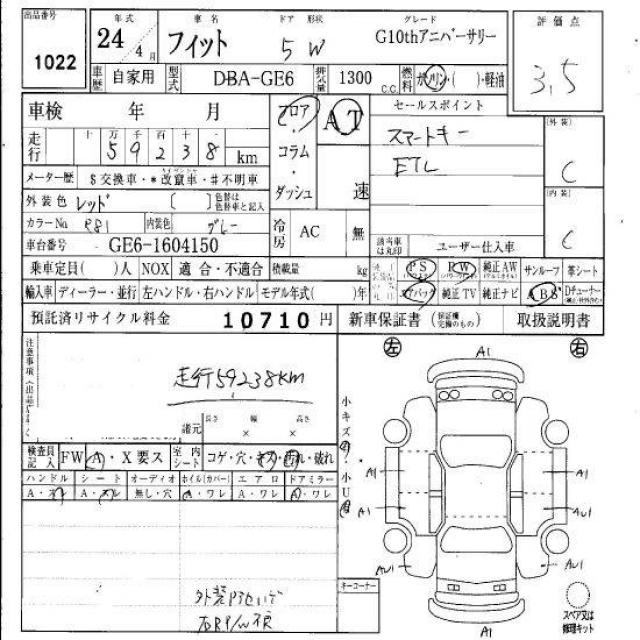 出品番号 年式 車名 ドア 形状 グレード 評価点
1022 24年 4月 フィット 5 W G10thアニバーサリー 3.5
車歴 自家用 型式 DBA-GE6 排気量 1300 C.C. 燃料 ガソリン・( )・軽油
車検 年 月 フロア AT セールスポイント
走行 十万千百十 59238 km コラム スマートキー [外装] C
ETC
メーター歴 $交換車・*改竄車・#不明車 ダッシュ 速
外装色 レッド [ ] 色替は色替車と記入 [内装] C
カラーNo R81 内装色 グレー 冷房 AC 無
車台番号 GE6-1604150 該当車は丸印 ユーザー仕入車
乗車定員( )人 NOX 適合・不適合 積載量 kg PS PW 純正AW サンルーフ 革シート
輸入車 ディーラー・並行 左ハンドル・右ハンドル モデル年式( )年 エアバック 純正TV 純正ナビ ABS Dチューナー
預託済リサイクル料金 10710円 新車保証書 (保証欄完備のもの) 取扱説明書
注意事項 左 A1 右
走行59238KM
諸元 長さ × 幅 × 高さ
小キズ
検査員記入 FW A・X要ス 室内シート コゲ・穴・キズ・汚れ・破れ 小U
ハンドル シート オーディオ ホイル(カバー) エアロ ドアミラー
A・スレ A・スレ 無し・穴 A・ワレ A・ワレ A・ワレ
A1 A1
A1 A1
AU1 AU1
キーコーナー
A1
スペア又は修理キット